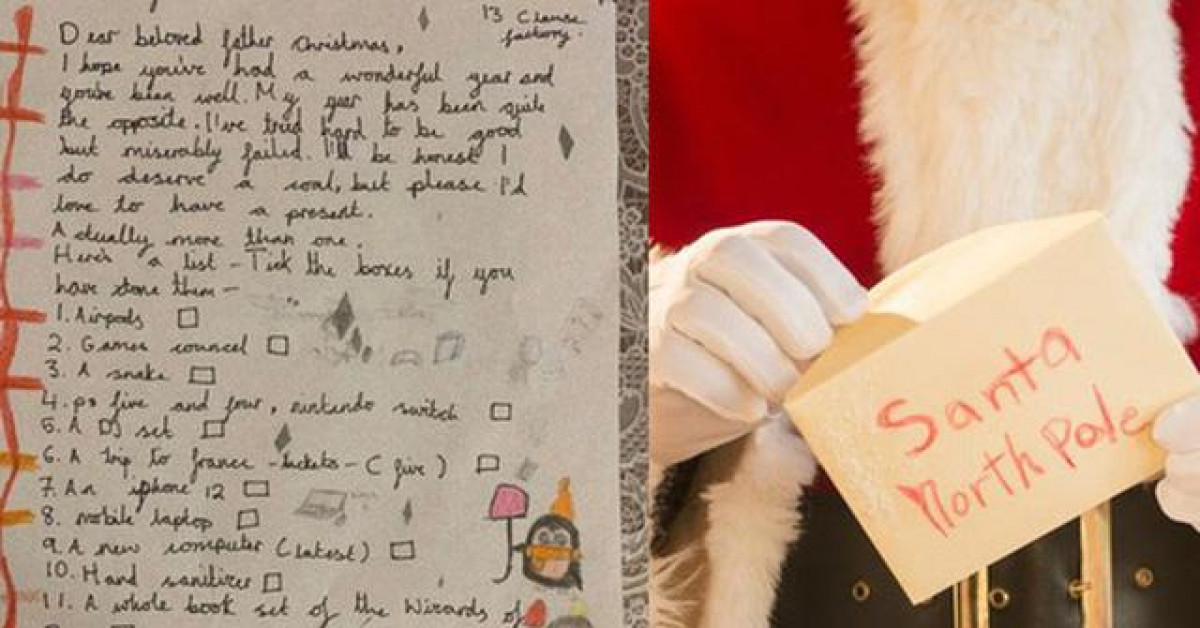 13 Clause
factory.
Dear beloved father Christmas,
I hope you've had a wonderful year and
you've been well. My year has been quite
the opposite. I've tried hard to be good
but miserably failed. I'll be honest I
do deserve a coal, but please I'd
love to have a present.
Actually more than one.
Here's a list - Tick the boxes if you
have done them -
1. Airpods
2. Games councel
3. A snake
4. ps five and four, nintendo switch
5. A DJ set
6. A trip to france - tickets - (five)
7. An iphone 12
8. mobile laptop
9. A new computer (latest)
10. Hand sanitizer
11. A whole book set of the Wizards of
Santa
North Pole